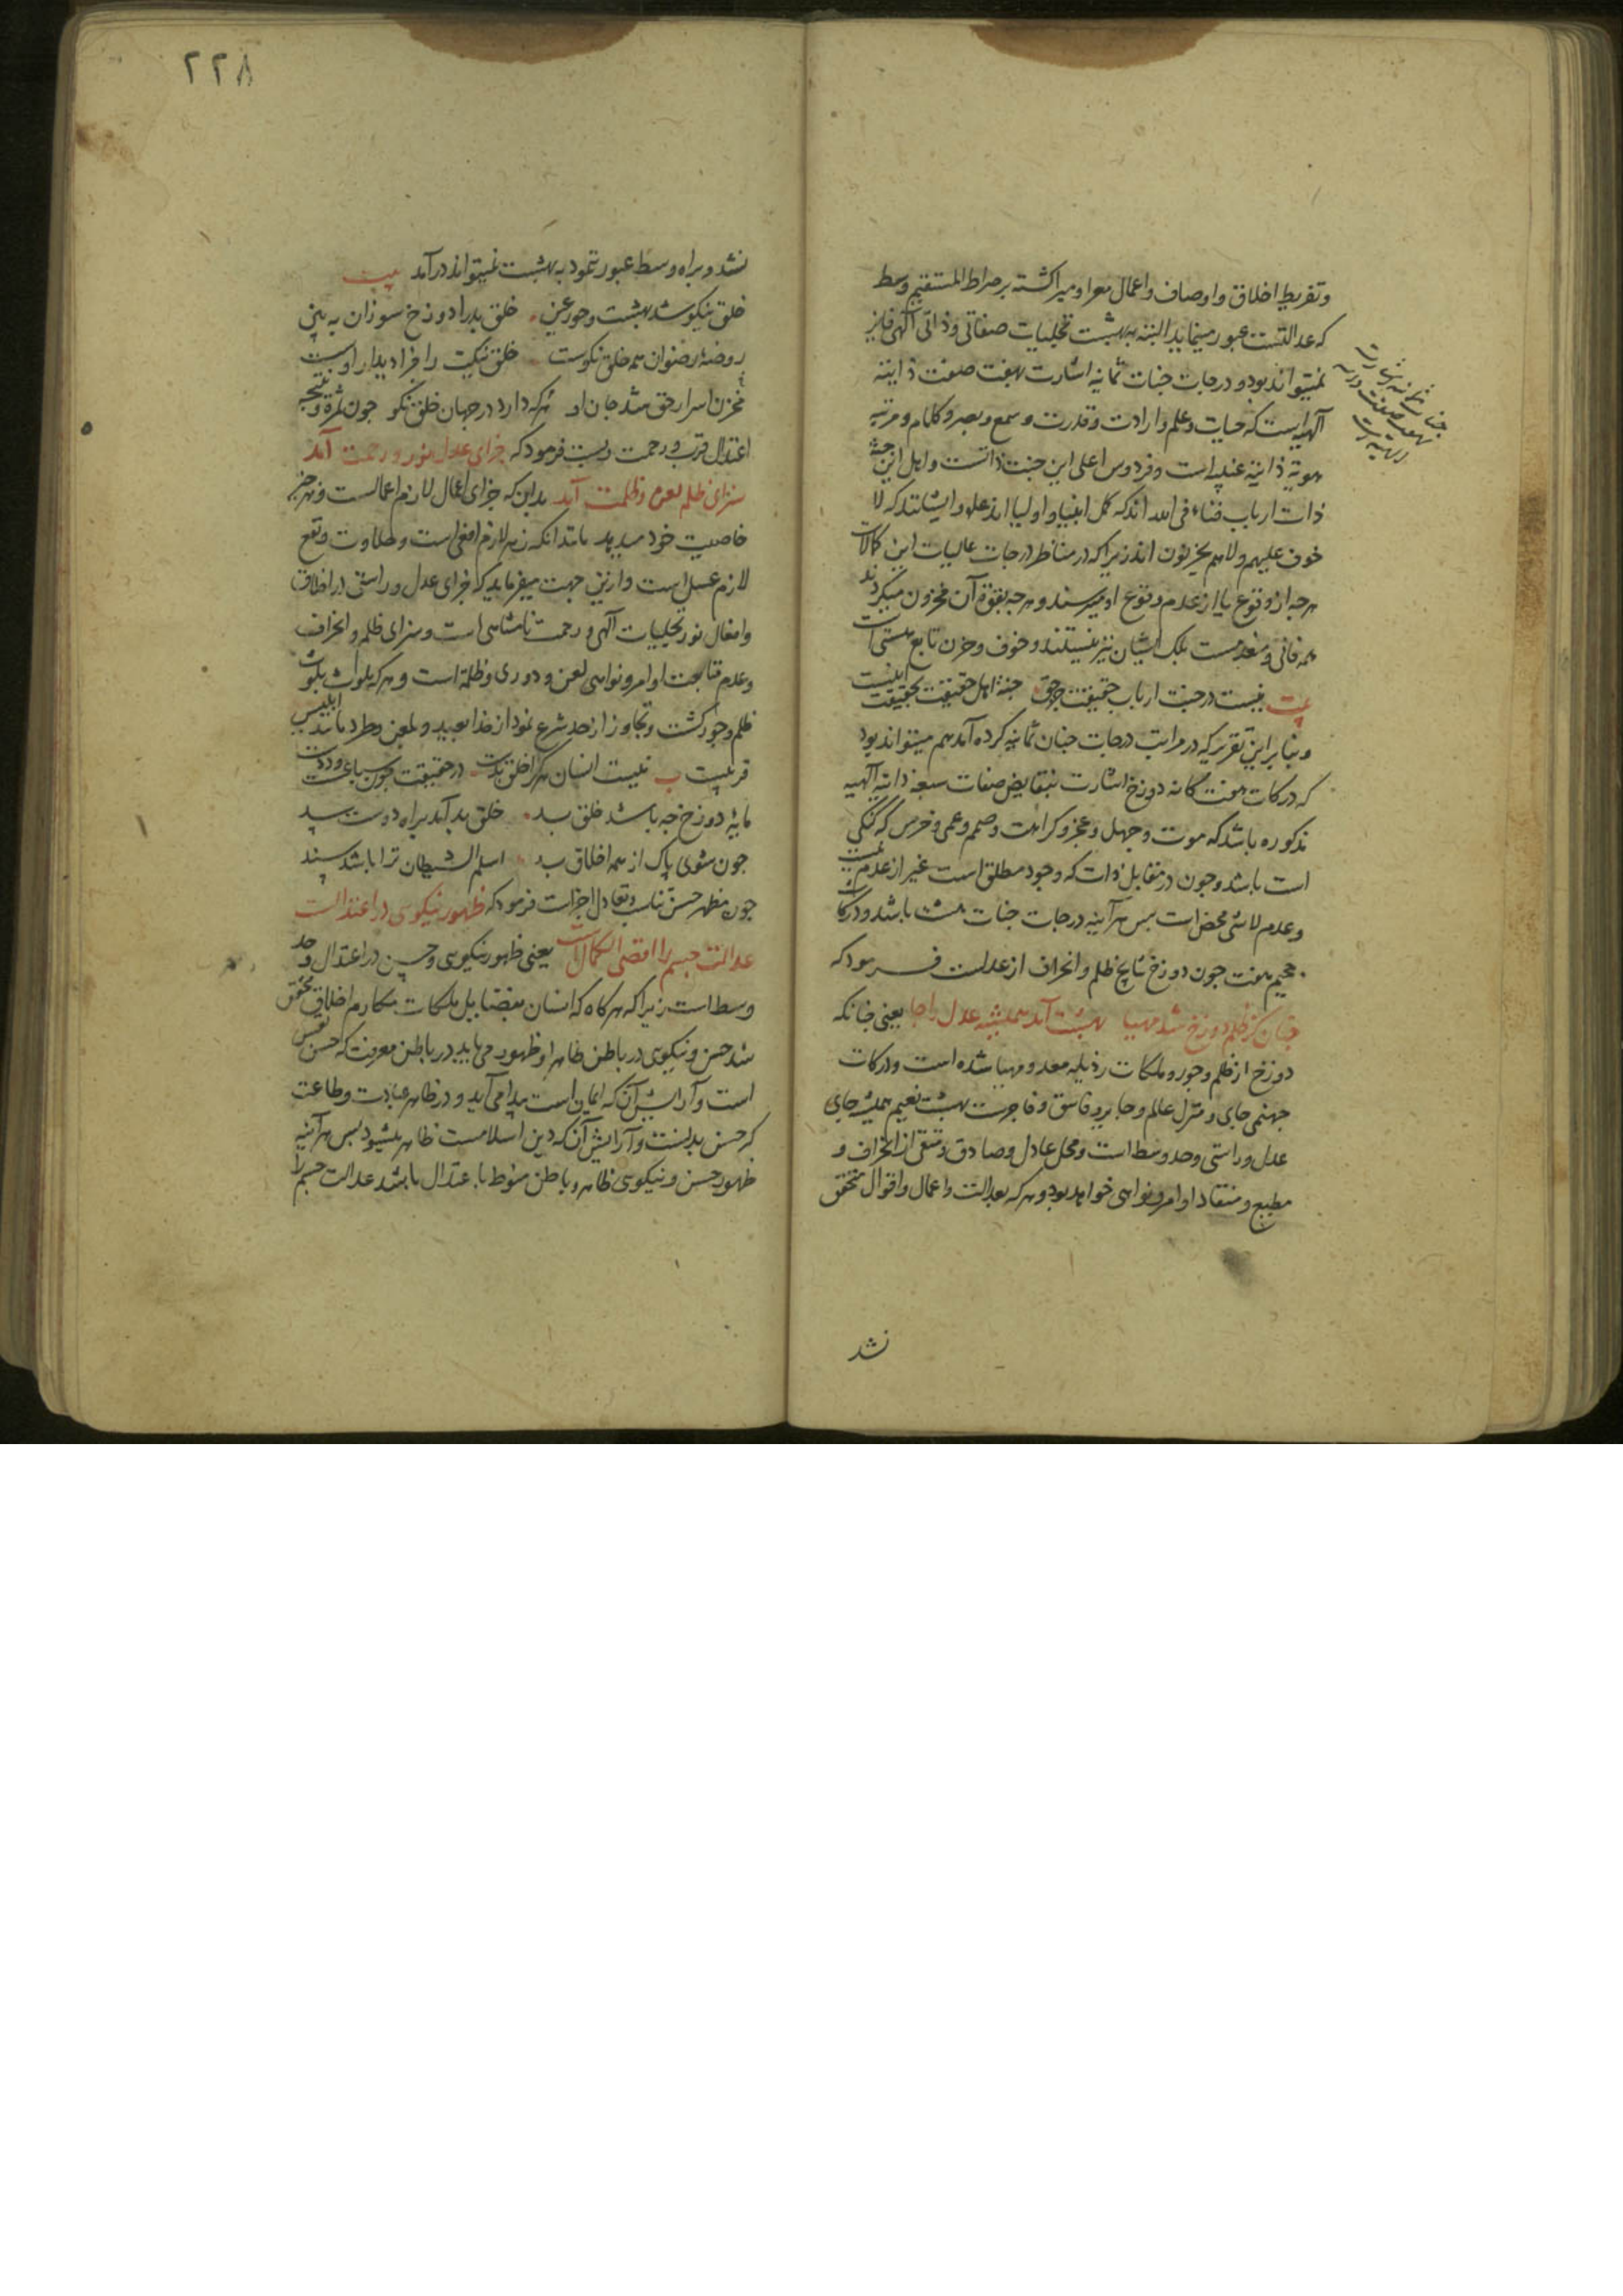 و تفریط اخلاق و اوصاف و اعمال معرا و مبرا کشته بر صراط المستقیم وسط
که عدالتست عبور مینماید البته ببهشت تجلیات صفاتی و ذاتی آلهی فایز
نمیتواند بود و درجات جنات ثمانیه اشارت بهفت صفت ذاتیه
آلهیه است که حیات و علم و ارادت و قدرت و سمع و بصر و کلام و مرتبه
ذاتیه است و فردوس اعلی این جنت ذاتست و اهل این جنة
ذات ارباب فناء فی الله اند که کمل انبیا و اولیا اند علو و ایشانند که لا
خوف علیهم ولا هم یحزنون اند زیرا که در مناظر درجات عالیات این کمالات
هرچه از وقوع یا از عدم وقوع او میترسند و هرچه بفوت آن محزون میکردند
همه فانی و منعدمست بلک ایشان نیز نیستند و خوف و حزن تابع هستی است
بیت نیست در جنت ارباب حقیقت جز حق جنة اهل حقیقت بحقیقت اینست
و بنا بر این تقریر که در مراتب درجات جنان ثمانیه کرده آمد هم میتواند بود
که درکات هفت کانه دوزخ اشارت بنقایض صفات سبعه ذاتیه آلهیه
مذکوره باشد که موت و جهل و عجز و کراهت و صمم و عمی و خرس که کنکی
است باشد و چون در مقابل ذات که وجود مطلق است غیر از عدم نیست
و عدم لاشی محض است پس هرآینه درجات جنات هشت باشد و درکات
جحیم هفت چون دوزخ نتایج ظلم و انحراف از عدالت فرمود که
چنان کز ظلم دوزخ شد مهیا بهشت آمد همیشه عدل را جا یعنی چنانکه
دوزخ از ظلم و جور و ملکات رذیله معد و مهیا شده است و درکات
جهنمی جای و منزل ظالم و جابر و فاسق و فاجرست بهشت نعیم همیشه جای
عدل و راستی و حد وسط است و محل عادل و صادق و متقی از انحراف و
مطیع و منقاد اوامر و نواهی خواهد بود و هر که بعدالت و اعمال و اقوال متحقق
نشد
جنات ثمانیه اشارت
بهفت صفت ذاتیه
الهیه است
۲۲۸
نشد و براه وسط عبور ننمود به بهشت نمیتواند درآمد بیت
خلق نیکو شد بهشت و حور عین خلق بد را دوزخ سوزان ببین
روضهٔ رضوان همه خلق نکوست خلق نیکت را جزا دیدار اوست
مخزن اسرار حق شد جان او هرکه دارد در جهان خلق نکو چون ثمره و نتیجه
اعتدال قرب و رحمت است فرمود که جزای عدل نور و رحمت آمد
سزای ظلم لعن و ظلمت آمد بدان که جزای اعمال لازم اعمالست و هر چیز
خاصیت خود میدهد مانند انکه زهر لازم افعی است و حلاوت و نفع
لازم عسل است و ازین جهت میفرماید که جزای عدل و راستی در اخلاق
و افعال نور تجلیات آلهی و رحمت نامتناهی است و سزای ظلم و انحراف
و عدم متابعت اوامر و نواهی لعن و دوری و ظلمة است و هر که بلوث
ظلم و جور کشت و تجاوز از حد شرع نمود از خدا بعید و بلعن و طرد مانند ابلیس
قرینست نیست انسان هرکرا خلق بدست در حقیقت چون سباعست و ددست
مایهٔ دوزخ چه باشد خلق بد خلق بد آمد براه دوست سد
چون شوی پاک از همه اخلاق بد اسلم الشیطان ترا باشد سند
چون مظهر حسن تناسب و تعادل اجزاست فرمود که ظهور نیکوی در اعتدالست
عدالت جسم را اقصی الکمالست یعنی ظهور نیکویی و حسن در اعتدال و حد
وسط است زیرا که هرکاه که انسان بفضایل ملکات مکارم اخلاق متحقق
شد حسن و نیکویی در باطن ظاهر او ظهور می یابد در باطن معرفت که حسن نفس
است و آرایش آن که ایمان است پیدا می آید و در ظاهر عبادت و طاعت
که حسن بدنست و آرایش آن که دین اسلامست ظاهر میشود پس هرآینه
ظهور حسن و نیکویی ظاهر و باطن منوط باعتدال باشد عدالت جسم را